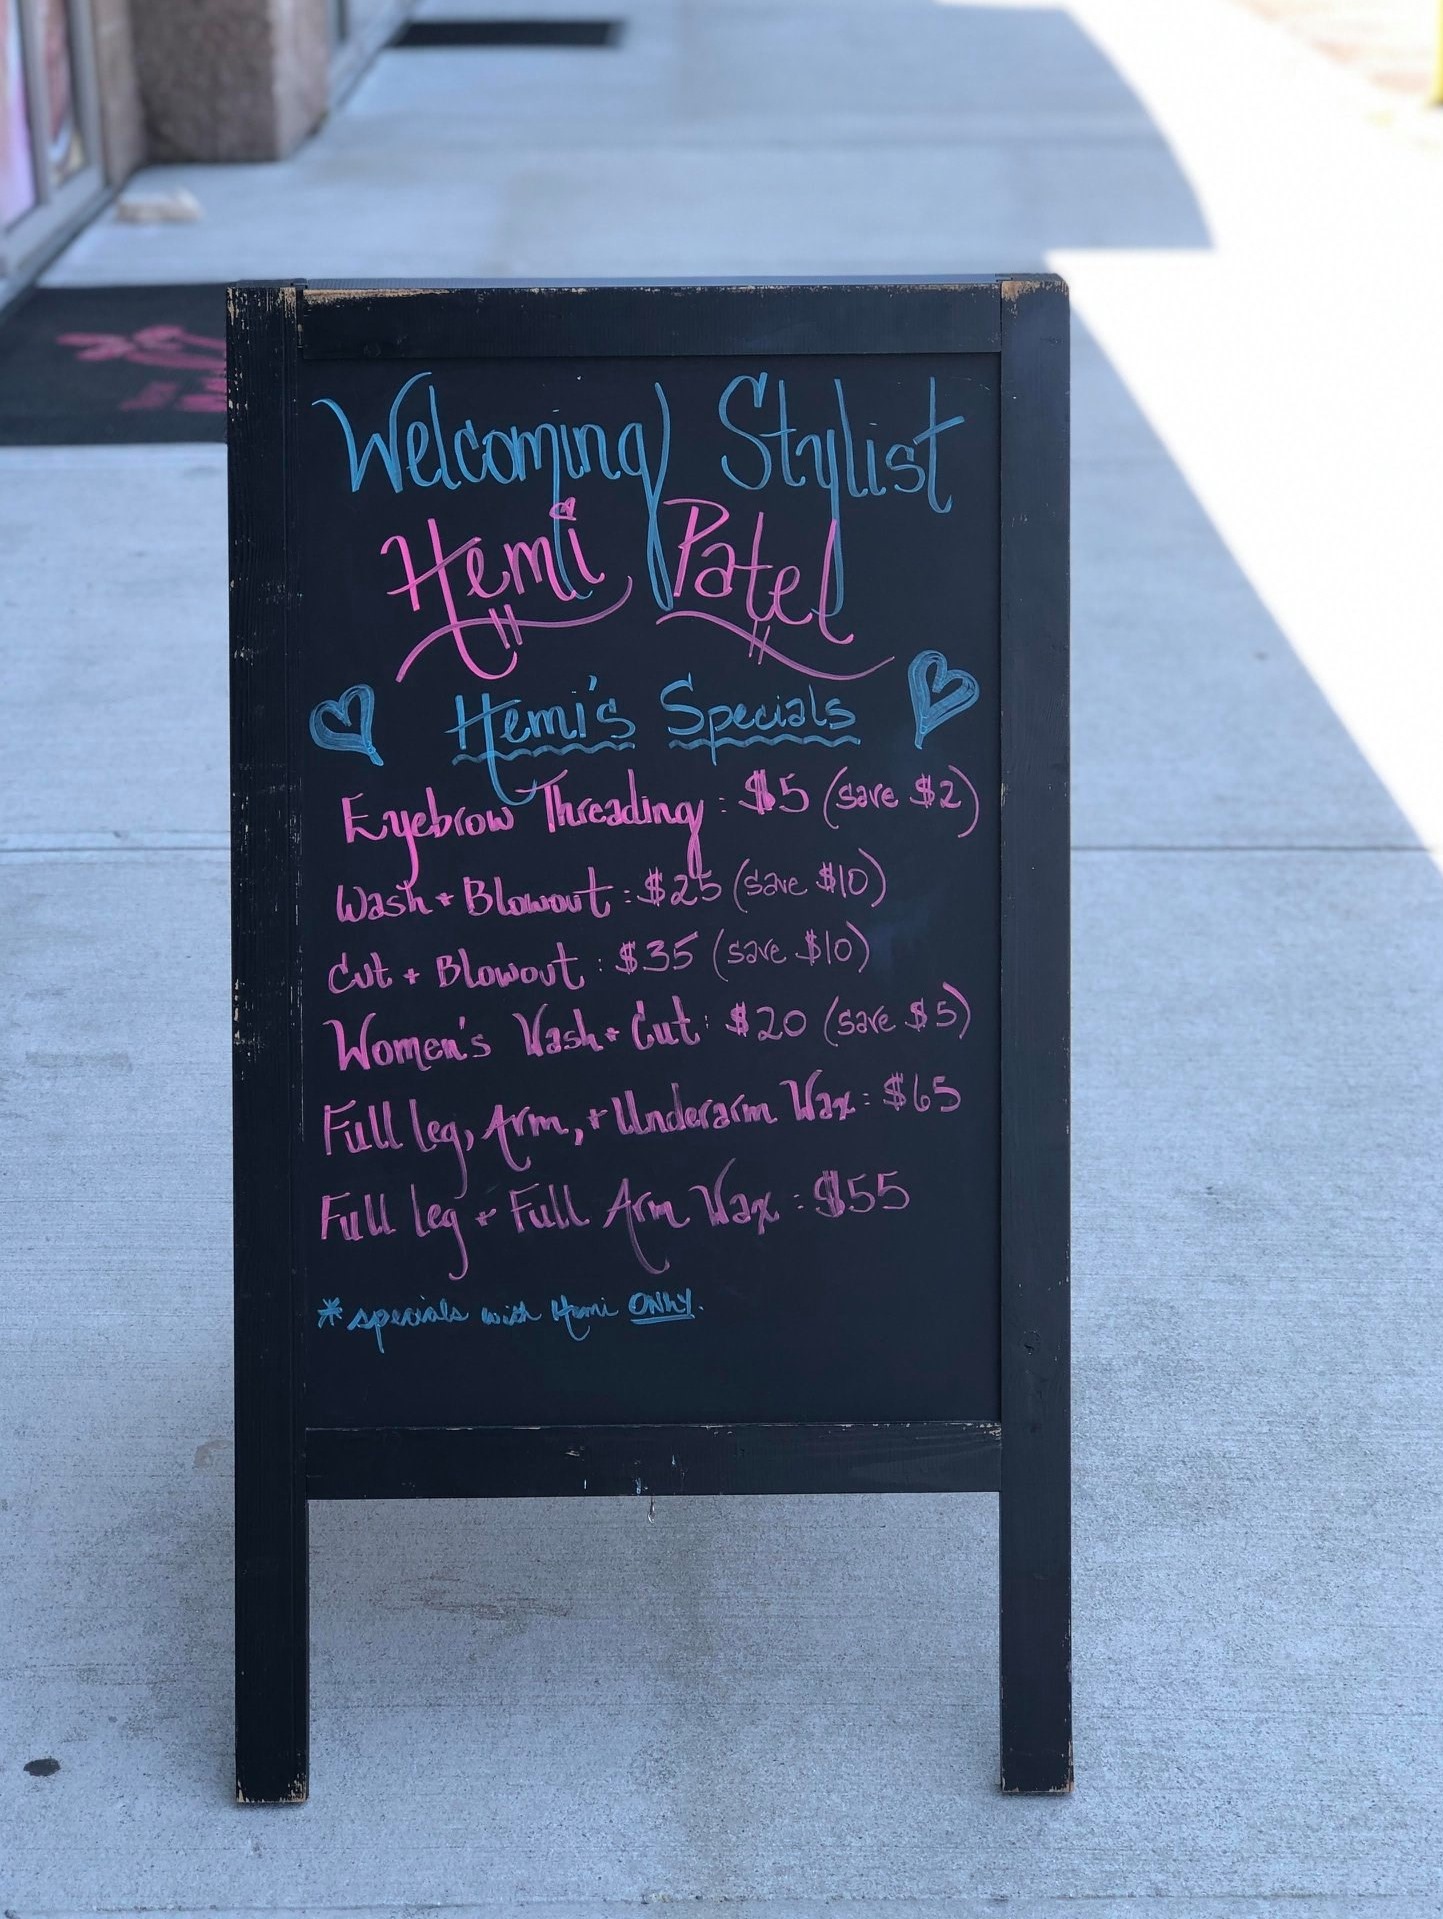 Welcoming Stylist
Hemi Patel
Hemi's Specials
Eyebrow Threading: $5 (save $2)
Wash + Blowout: $25 (save $10)
Cut + Blowout: $35 (save $10)
Women's Wash + Cut: $20 (save $5)
Full leg, Arm, + Underarm Wax: $65
Full leg + Full Arm Wax: $55
* specials with Hemi ONLY.